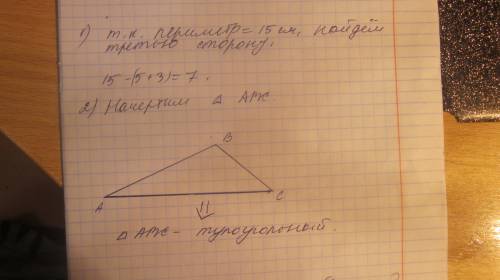 1) т.к. периметр = 15 см, найдём
третью сторону.
15 - (5+3) = 7.
2) Начертим △ ABC
B
A
C
⇓
△ ABC - тупоугольный.